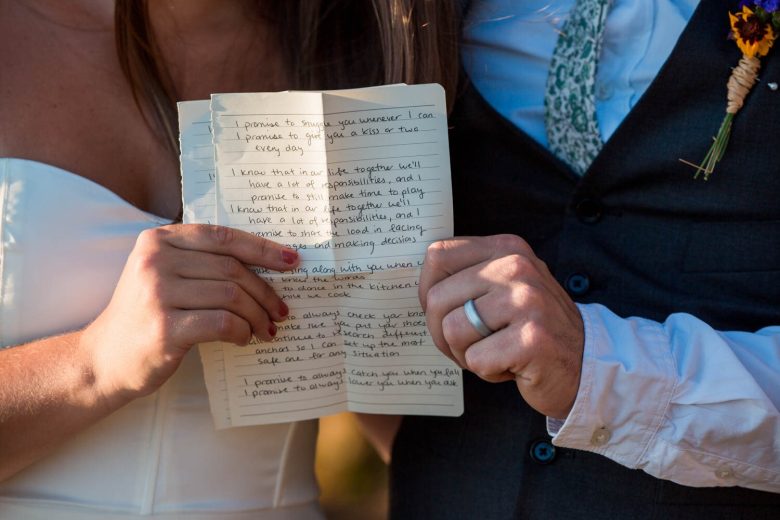 I promise to snuggle you whenever I can
I promise to give you a kiss or two
every day
I know that in our life together we'll
have a lot of responsibilities, and I
promise to still make time to play
I know that in our life together we'll
have a lot of responsibilities, and I
promise to share the load in facing
and making decisions
sing along with you when
know the words
to dance in the kitchen
while we cook
to always check your knot
make sure you put your shoes
continue to research different
anchors so I can set up the most
safe one for any situation
I promise to always catch you when you fall
I promise to always lower you when you ask.